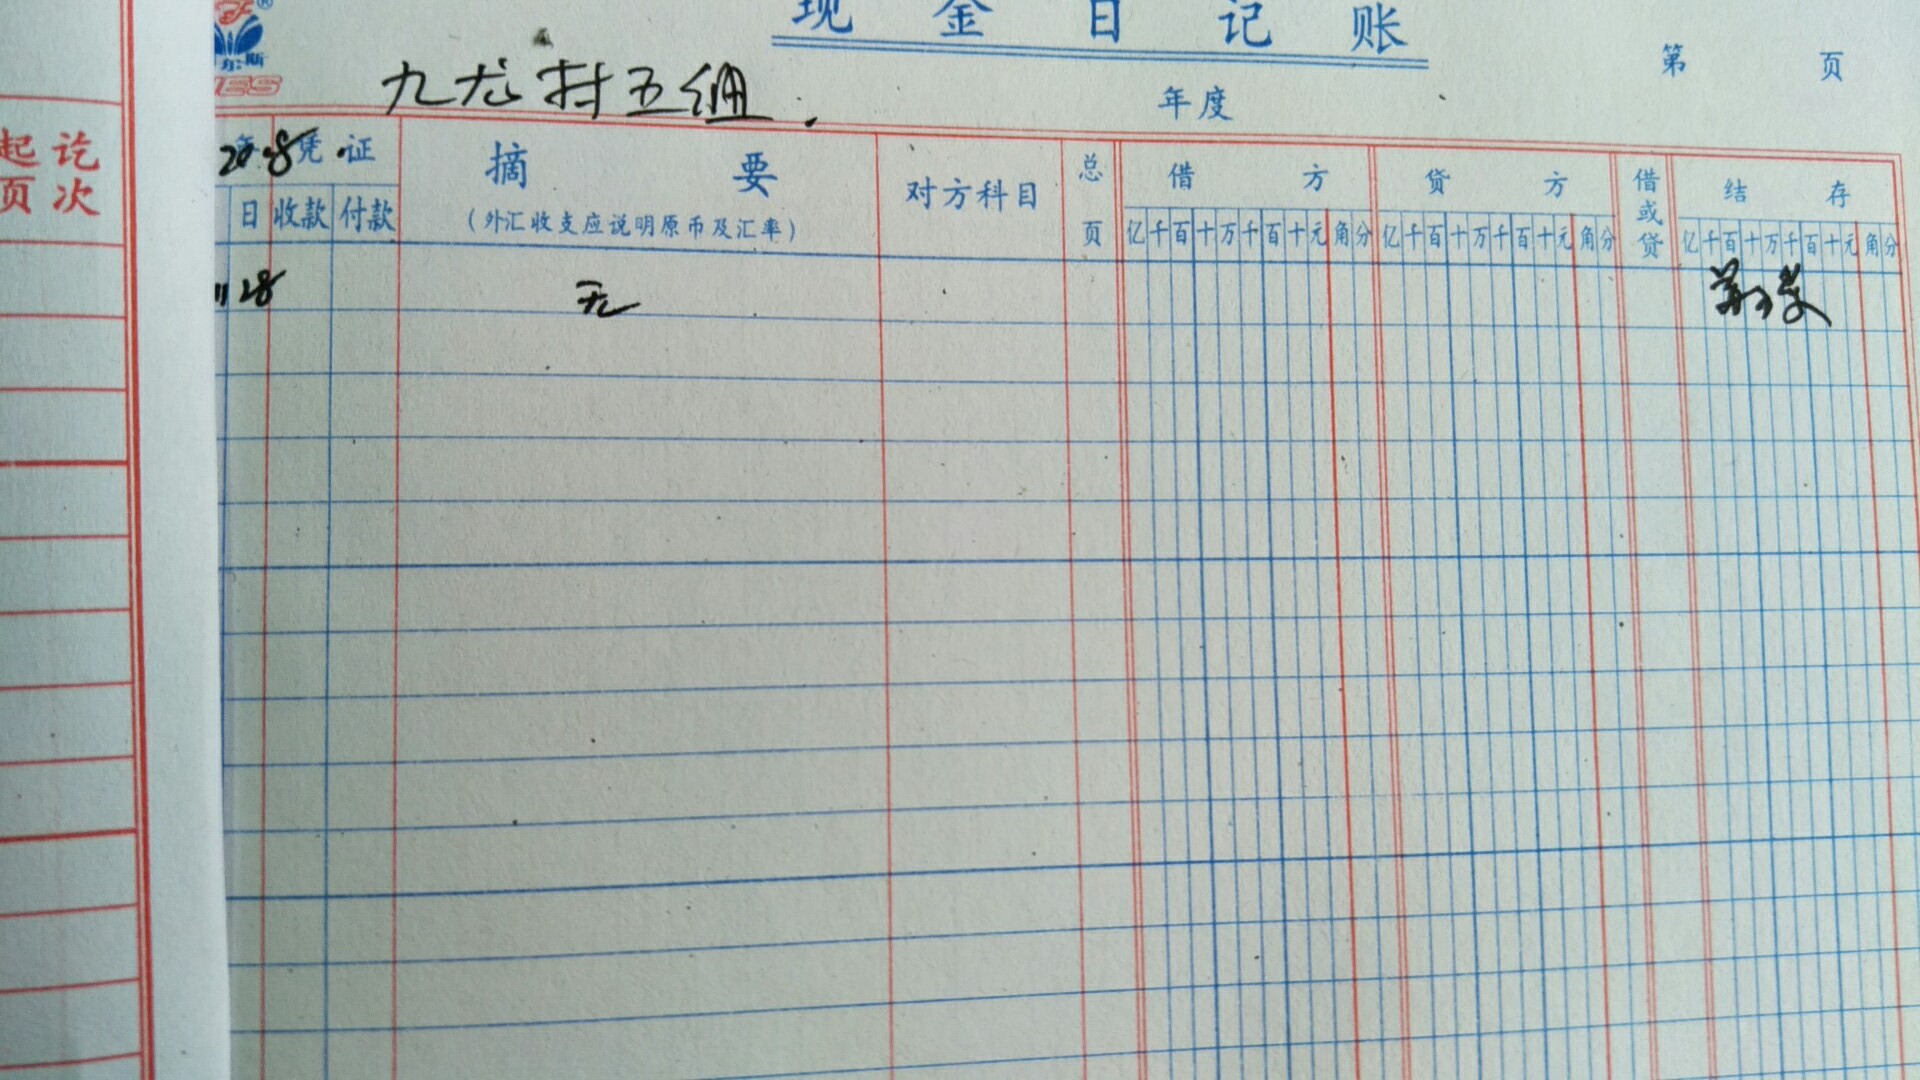 现金日记账
尔斯
九龙村五组.
年度
第 页
起讫
页次
年 凭证
摘要
对方科目
总页
借方
贷方
借或贷
结存
日 收款 付款
(外汇收支应说明原币及汇率)
亿千百十万千百十元角分
亿千百十万千百十元角分
亿千百十万千百十元角分
11 28
无